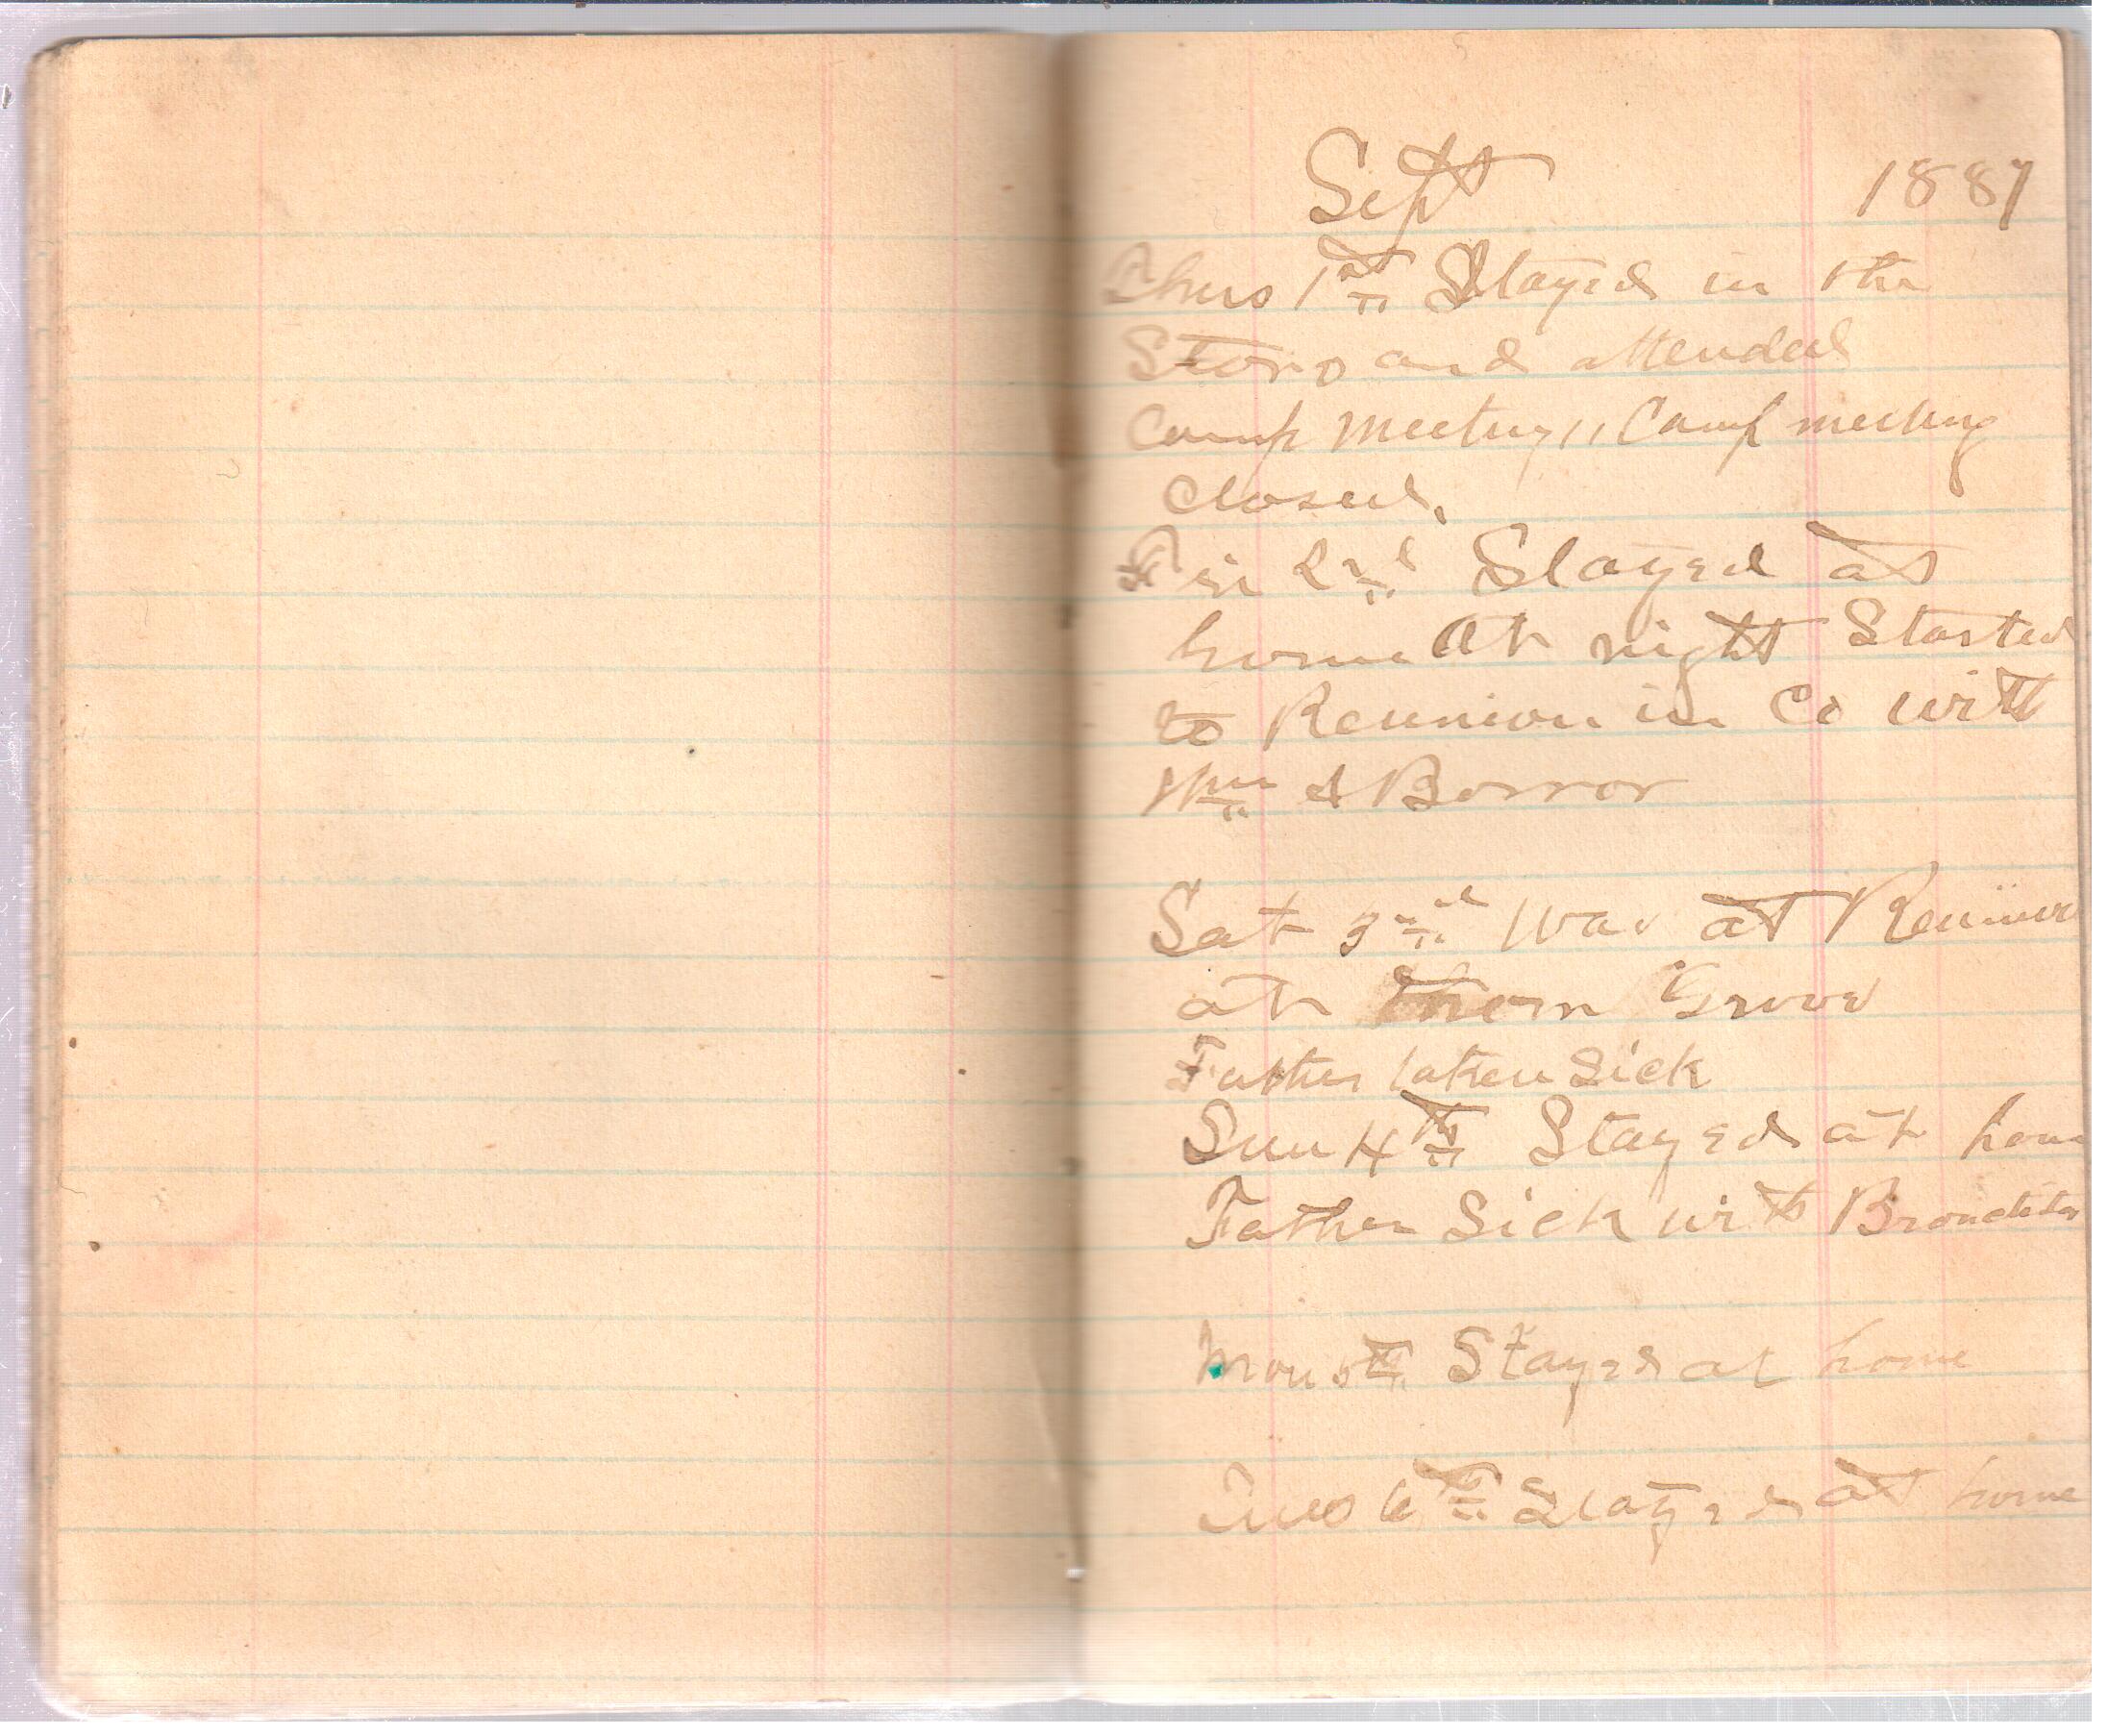 Sept 1887
Thurs 1st Stayed in the
Store and attended
Camp Meeting,, Camp meeting
Closed.
Fri 2nd Stayed at
home At night Started
to Reunion in Co with
Wm A Borror
Sat 3rd Was at Reunion
at Thorn Grove
Father taken Sick
Sun 4th Stayed at home
Father Sick with
Mon 5th Stayed at home
Tues 6th Stayed at home